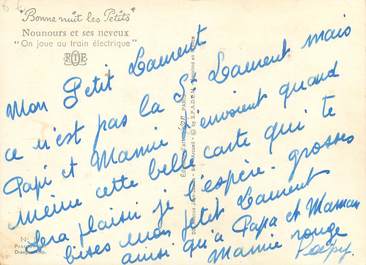 "Bonne nuit les Petits"
Nounours et ses neveux
"On joue au train électrique"
Mon Petit Laurent
ce n'est pas la St Laurent mais
Papi et Mamie t'envoient quand
meme cette belle carte qui te
sera plaisir je l'espère. grosses
bises mon petit Laurent
ainsi qu'a Papa et Maman
Mamie rouge
Papy